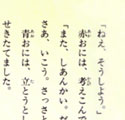 「ねえ、そうしよう。」
赤おには、考えこんで
「また、しあんかい。だ
さあ、いこう。さっさと
青おには、立とうと
せきたてました。